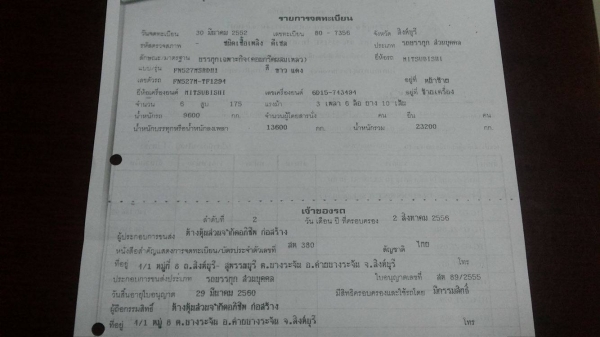 รายการจดทะเบียน
วันจดทะเบียน 20 มีนาคม 2552 เลขทะเบียน 80 - 1356 จังหวัด สิงห์บุรี
รหัสตรวจสภาพ - ชนิดเชื้อเพลิง ดีเซล ประเภท รถบรรทุก ส่วนบุคคล
ลักษณะ/มาตรฐาน บรรทุกเฉพาะกิจ ยี่ห้อรถ MITSUBISHI
แบบ/รุ่น สี ขาว แดง
เลขตัวรถ อยู่ที่ หน้าซ้าย
ยี่ห้อเครื่องยนต์ MITSUBISHI เลขเครื่องยนต์ 6D15-743494 อยู่ที่ ซ้ายเครื่อง
จำนวน 6 สูบ 175 แรงม้า 3 เพลา 6 ล้อ ยาง 10 เส้น
น้ำหนักรถ 9600 กก. จำนวนผู้โดยสารนั่ง คน ยืน คน
น้ำหนักบรรทุกหรือน้ำหนักลงเพลา 13600 กก. น้ำหนักรวม 23200 กก.
เจ้าของรถ
ลำดับที่ 2 วัน เดือน ปี ที่ครอบครอง 2 สิงหาคม 2556
ผู้ประกอบการขนส่ง ห้างหุ้นส่วนจำกัดอภิชิต ก่อสร้าง
หนังสือสำคัญแสดงการจดทะเบียน/บัตรประจำตัวเลขที่ สต 380 สัญชาติ ไทย
ที่อยู่ 4/1 หมู่ที่ 8 ถ.สิงห์บุรี- สุพรรณบุรี ต.บางระจัน อ.ค่ายบางระจัน จ.สิงห์บุรี โทร
ประกอบการขนส่งประเภท รถบรรทุก ส่วนบุคคล ใบอนุญาตเลขที่ สต 89/2555
วันสิ้นอายุใบอนุญาต 29 มีนาคม 2560 มีสิทธิครอบครองและใช้รถโดย มีกรรมสิทธิ์
ผู้ถือกรรมสิทธิ์ ห้างหุ้นส่วนจำกัดอภิชิต ก่อสร้าง
ที่อยู่ 4/1 หมู่ 8 ต.บางระจัน อ.ค่ายบางระจัน จ.สิงห์บุรี โทร